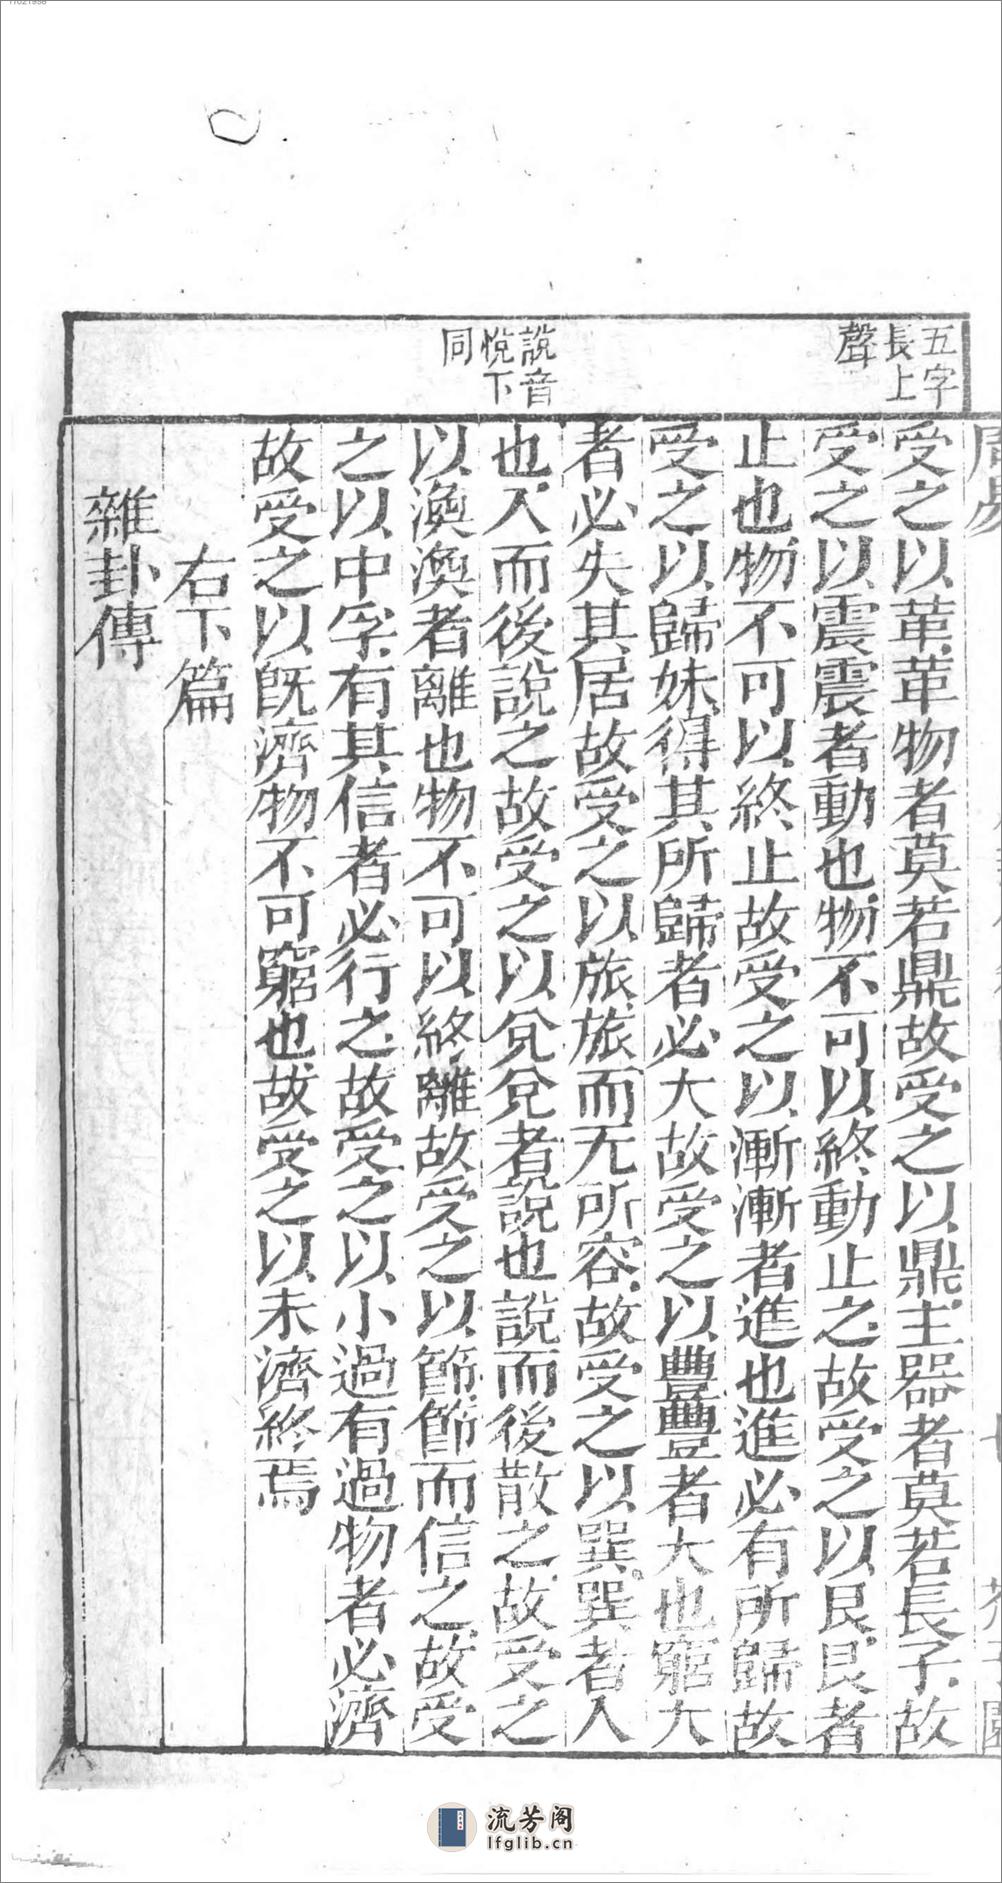 11021958
五字
長上
聲
說音
悅下
同
周易
受之以革革物者莫若鼎故受之以鼎主器者莫若長子故
受之以震震者動也物不可以終動止之故受之以艮艮者
止也物不可以終止故受之以漸漸者進也進必有所歸故
受之以歸妹得其所歸者必大故受之以豐豐者大也窮大
者必失其居故受之以旅旅而无所容故受之以巽巽者入
也入而後說之故受之以兌兌者說也說而後散之故受之
以渙渙者離也物不可以終離故受之以節節而信之故受
之以中孚有其信者必行之故受之以小過有過物者必濟
故受之以旣濟物不可窮也故受之以未濟終焉
右下篇
雜卦傳
流芳阁
lfglib.cn